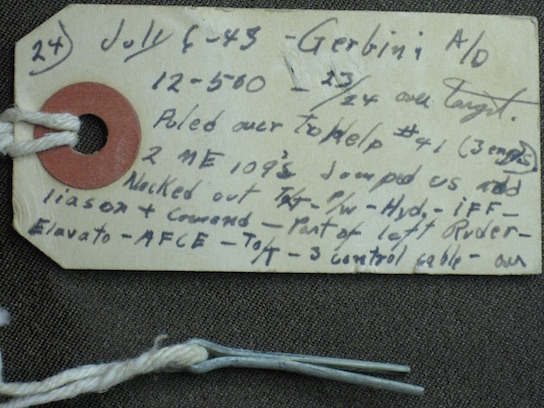 24) July 6-43 - Gerbini A/D
12-500 - 23/24 over Target.
Puled over to Help #41 (3 engs)
2 ME 109's Jumped us and
Nocked out P/W - Hyd. - IFF -
liason + Comand - Part of left Ruder -
Elavato - AFCE - To/T - 3 control cable - our